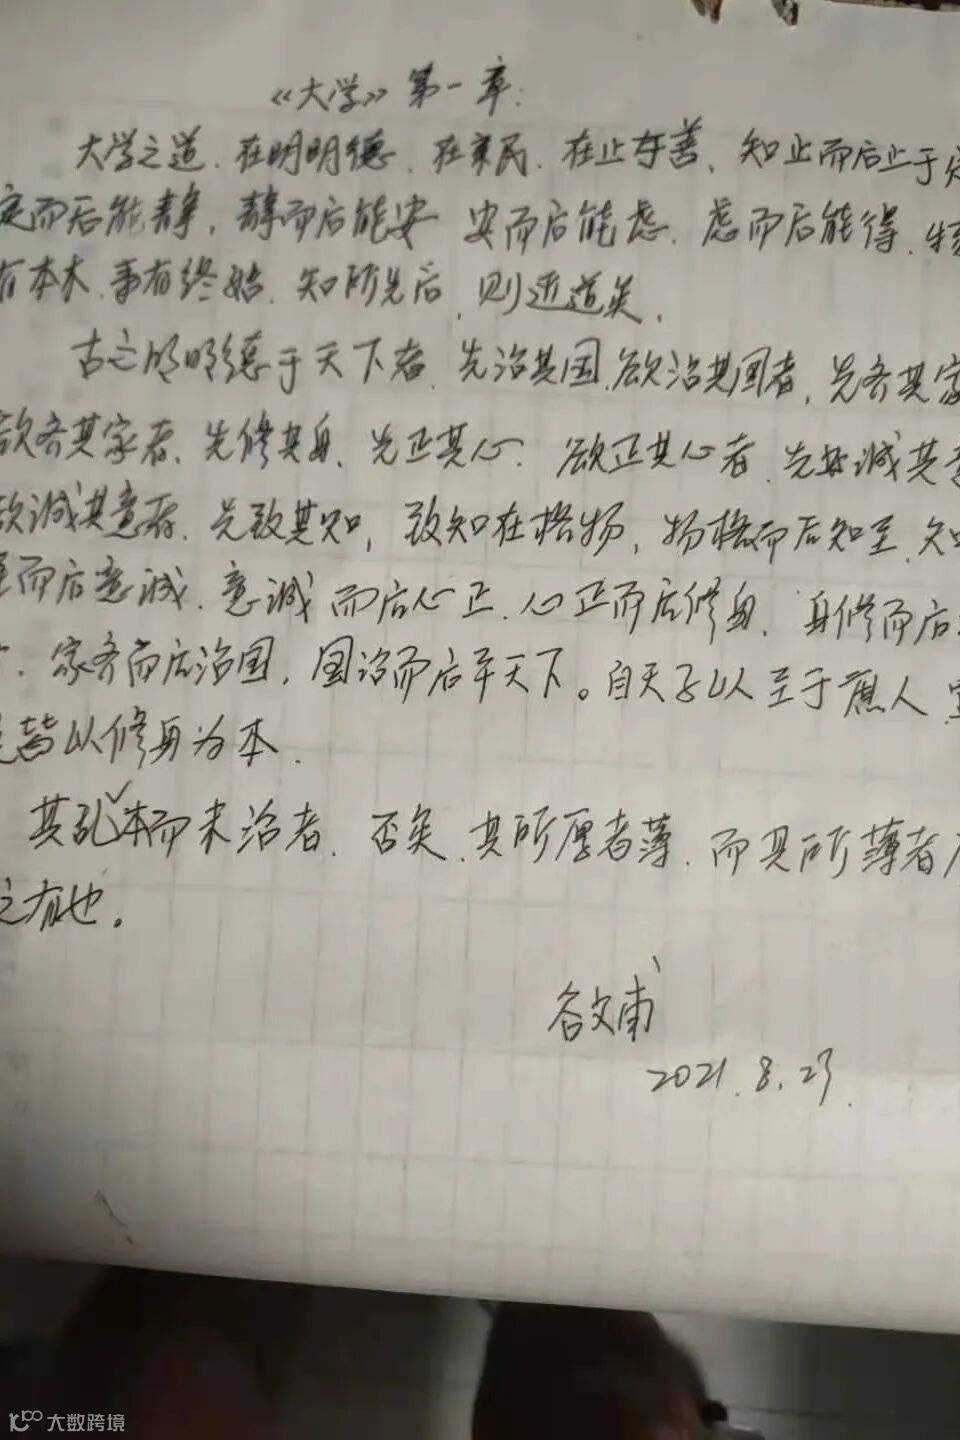 《大学》第一章:
大学之道.在明明德.在亲民.在止于至善、知止而后止于定
定而后能静,静而后能安 安而后能虑.虑而后能得.物
有本末.事有终始.知所先后,则近道矣.
古之明明德于天下者.先治其国.欲治其国者,先齐其家
欲齐其家者、先修其身、先正其心.欲正其心者.先诚其意
欲诚其意者、先致其知,致知在格物,物格而后知至.知
至而后意诚.意诚而后心正.心正而后修身、身修而后
.家齐而后治国,国治而后平天下。自天子以至于庶人.
是皆以修身为本.
其乱本而末治者.否矣.其所厚者薄.而其所薄者厚
之有也。
谷文甫
2021.8.23.
大数跨境